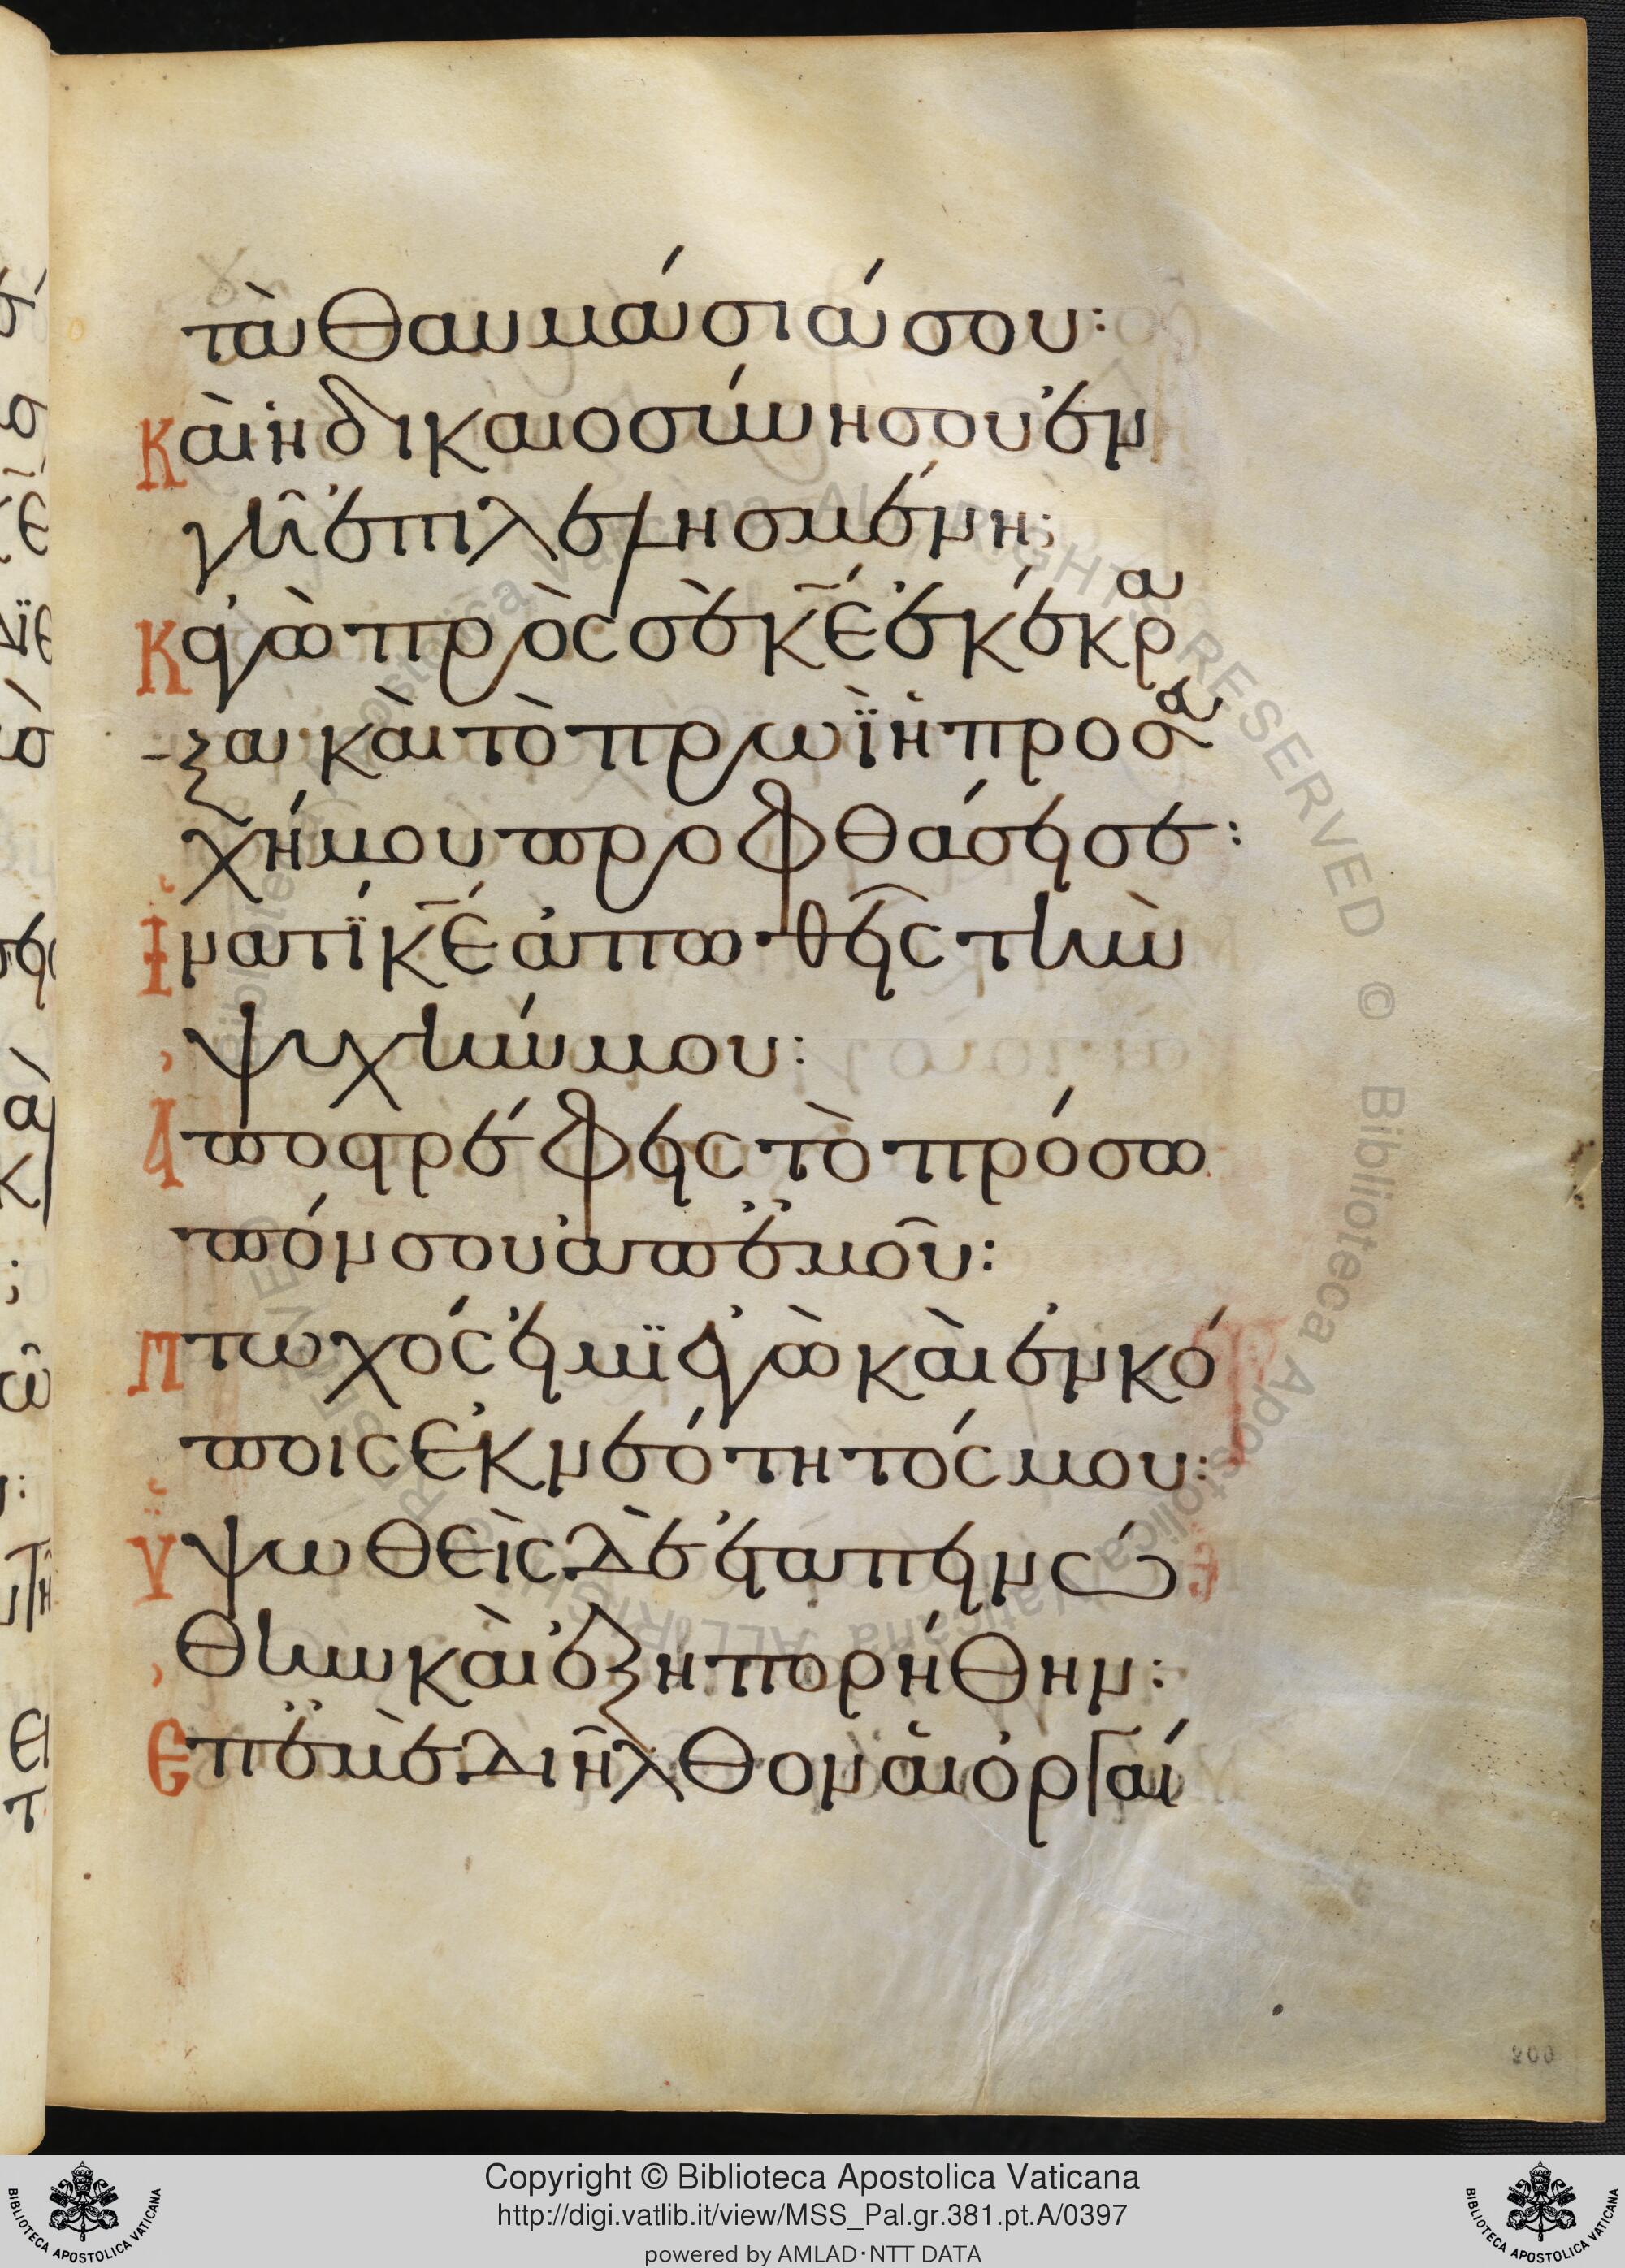 τὰ θαυμάσιά σου:
Καὶ ἡ δικαιοσύνη σου ἐν
γῆ ἐπιλελησμένη;
Κἀγὼ πρὸς σὲ κ̅ε̅ ἐκέκρα
ξα καὶ τὸ πρωῒ ἡ προσευ
χή μου προφθάσει σε:
Ἱνατί κ̅ε̅ ἀπωθεῖς τὴν
ψυχήν μου:
Ἀποστρέφεις τὸ πρόσω
πόν σου ἀπ ἐμοῦ:
Πτωχός εἰμϊ ἐγὼ καὶ ἐν κό
ποις ἐκ νεότητός μου:
Ὑψωθεὶς δὲ ἐταπεινώ
θην καὶ ἐξηπορήθην:
Ἐπ ἐμὲ διῆλθον αἱ ὀργαί
200
Copyright © Biblioteca Apostolica Vaticana
http://digi.vatlib.it/view/MSS_Pal.gr.381.pt.A/0397
powered by AMLAD·NTT DATA
BIBLIOTECA APOSTOLICA VATICANA
BIBLIOTECA APOSTOLICA VATICANA